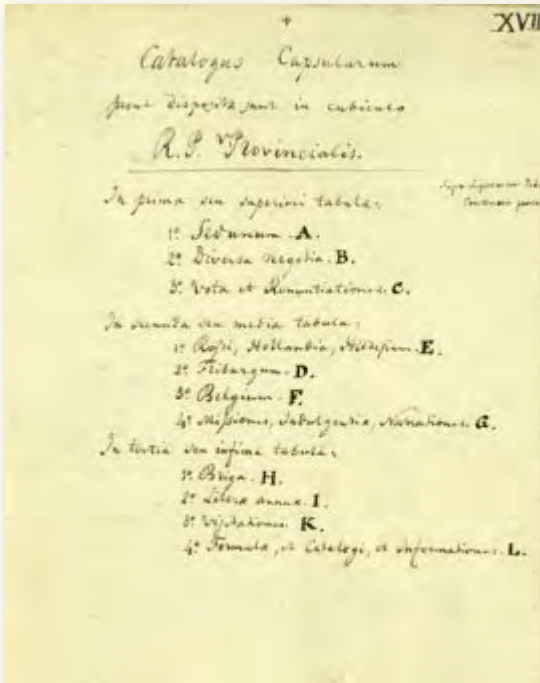 +
XVII
Catalogus Capsularum
prout disposita sunt in cubiculo
R. P. Provincialis.
In prima seu superiori tabula:
1º Sedunum. A.
2º Diversa negotia. B.
3º Vota et Renuntiationes. C.
In secunda seu media tabula:
1º Rossi, Hollandia, E.
2º Friburgum. D.
3º Belgium. F.
4º Missiones, Indulgentia, Narrationes. G.
In tertia seu infima tabula:
1º Briga. H.
2º Literæ annuæ. I.
3º Visitationes. K.
4º Formulæ, et Catalogi, et Informationes. L.